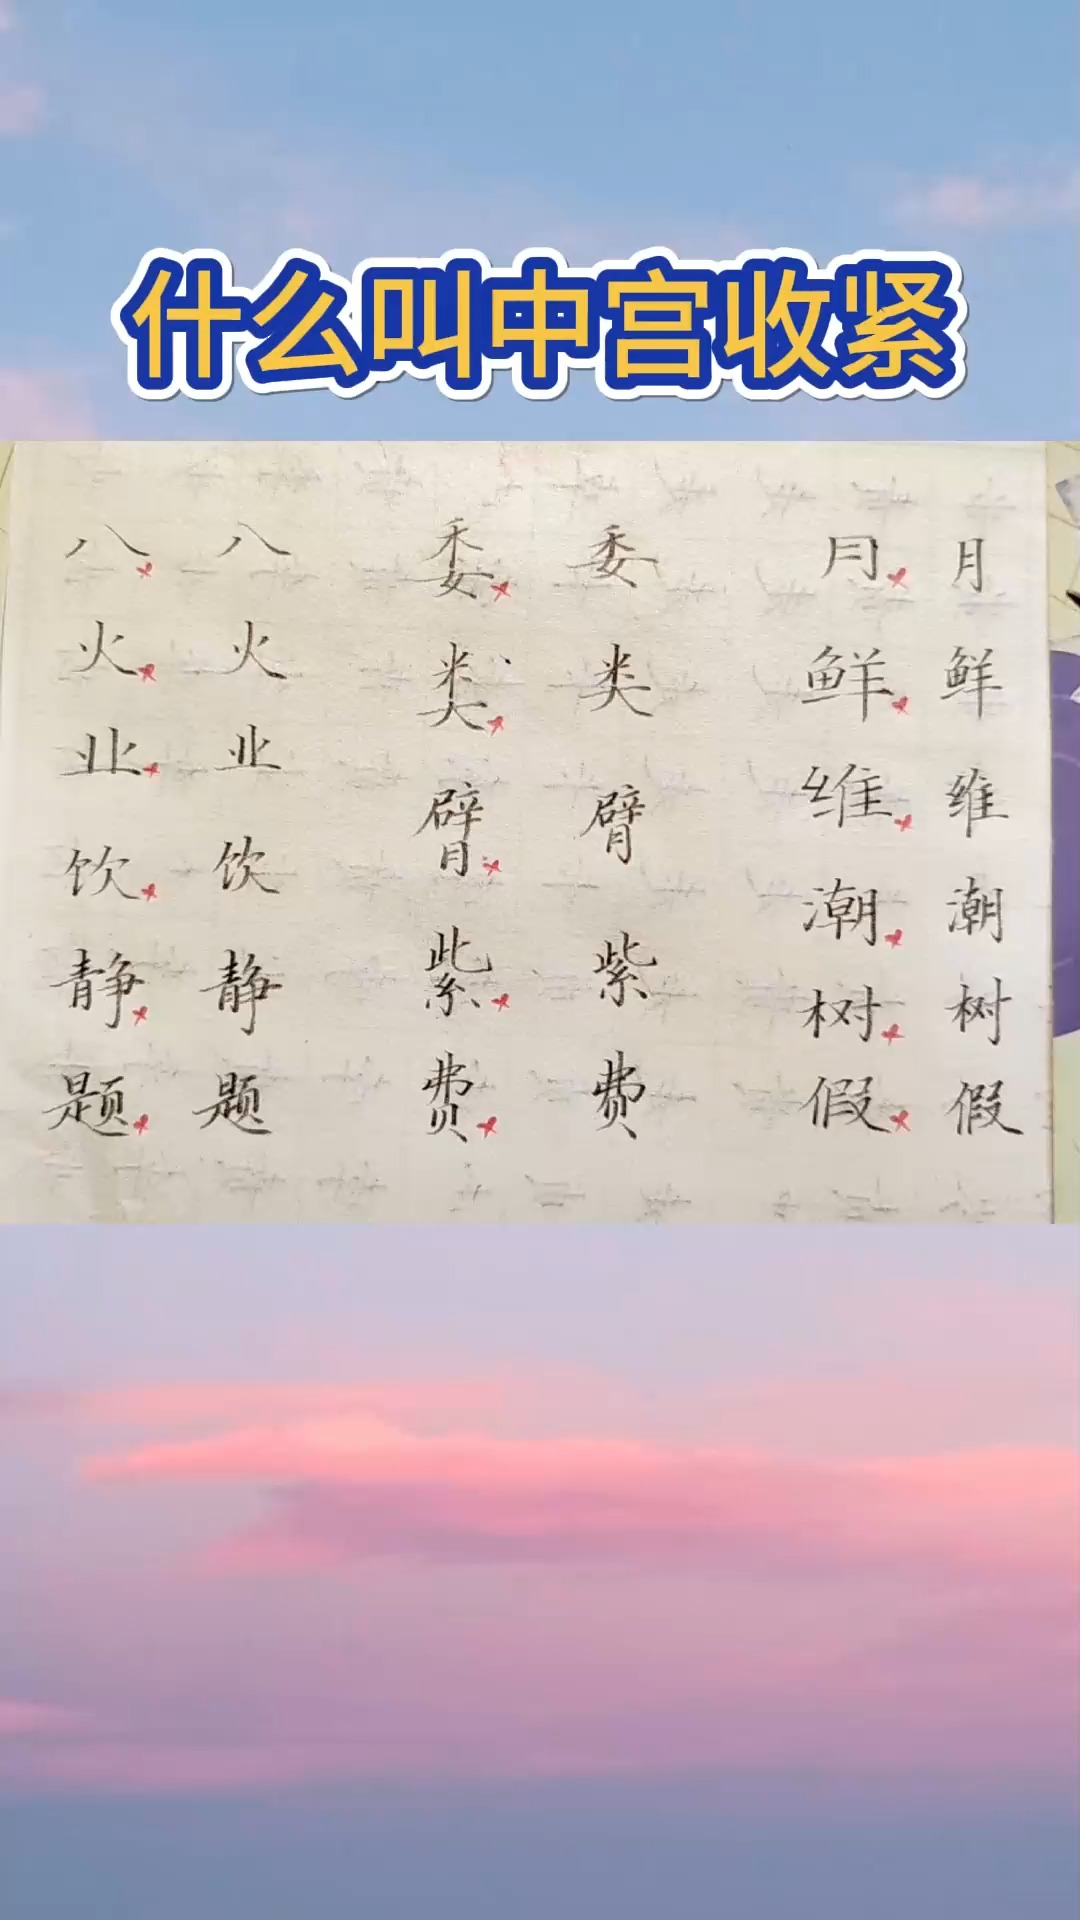 什么叫中宫收紧
八 八 委 委 月 月
火 火 类 类 鲜 鲜
业 业 臂 臂 维 维
饮 饮 紫 紫 潮 潮
静 静 费 费 树 树
题 题 假 假